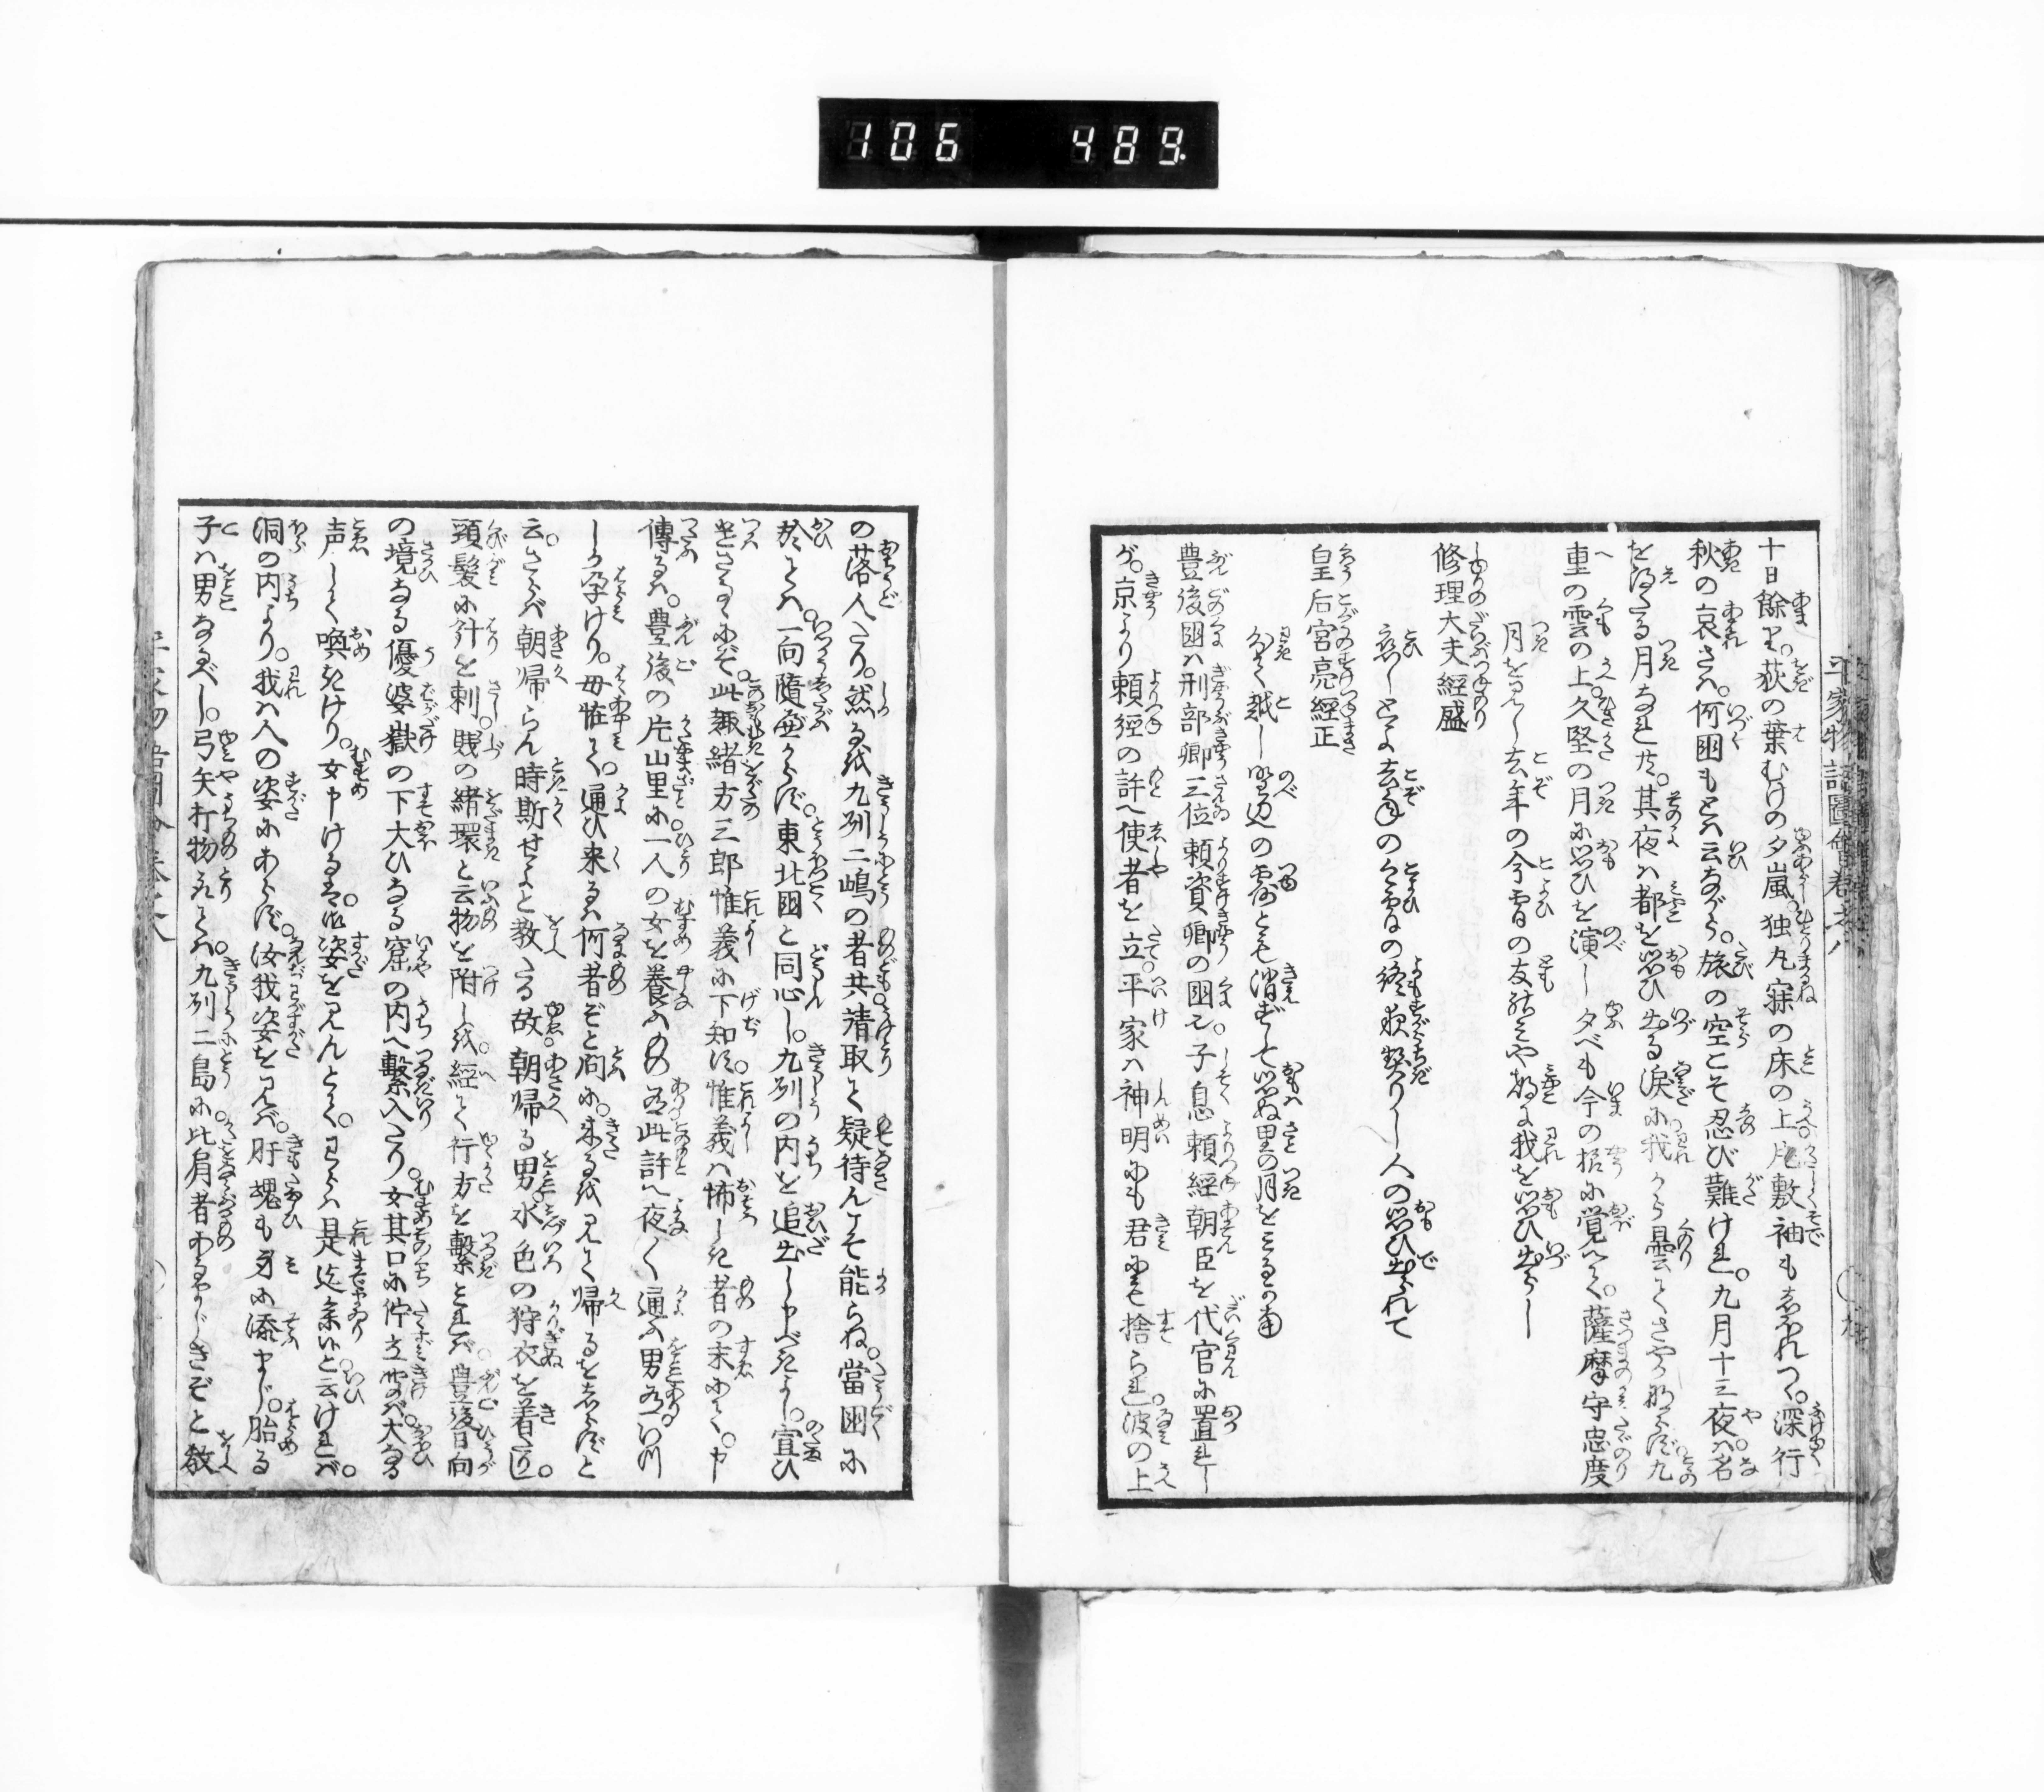 106 489.
平家物語圖會卷之八
十日餘り。荻の葉むけの夕嵐。独丸寐の床の上。片敷袖もしをれつゝ。深行
秋の哀さハ。何国もとハ云ながら。旅の空こそ忍び難けれ。九月十三夜ハ名
を得たる月なれ共。其夜ハ都を思ひ出る涙に我から曇てさやかならず。九
重の雲の上。久堅の月に思ひを演し夕べも今の様に覚へて。薩摩守忠度
月を見し去年の今宵の友のミや都に我を思ひ出らし
修理大夫經盛
恋しとよ去年の今宵の終夜契りし人の思ひ出られて
皇后宮亮經正
分て越し野辺の露とも消ずして思ぬ里の月をミるかな
豊後国ハ刑部卿三位頼資卿の国也。子息頼經朝臣を代官に置れし
が。京より頼經の許へ使者を立。平家ハ神明にも君にも捨られ。波の上
の落人たり。然るを九列二嶋の者共請取て疑待んこそ能らね。當国に
於てハ。一向隨べからず。東北国と同心し。九列の内を追出し申べきよし。宣ひ
遣さるゝにぞ。此趣緒方三郎惟義に下知す。惟義ハ怖しき者の末にて。申
傳るハ。豊後の片山里に一人の女を養ふもの有。此許へ夜々通ふ男有ハ
しか孕けり。母怪て。通ひ来るハ何者ぞと問に。来るを見て帰るをしらずと
云。さらバ朝帰らん時斯せよと教たる故。朝帰る男。水色の狩衣を着たり。
頸髪に針を刺。賎の緒環と云物を附しを。經て行方を繫とれバ。豊後日向
の境なる優婆嶽の下大ひなる窟の内へ繫入たり。女其口に佇立聞バ。大なる
声して喚きけり。女申けるハ。御姿を見んとて。わらハ是迄參ハと云けれバ。
洞の内より。我ハ人の姿にあらず。汝我姿を見バ。肝魂も身に添申まじ。胎る
子ハ男なるべし。弓矢打物取てハ。九列二島に比肩者あるまじきぞと教